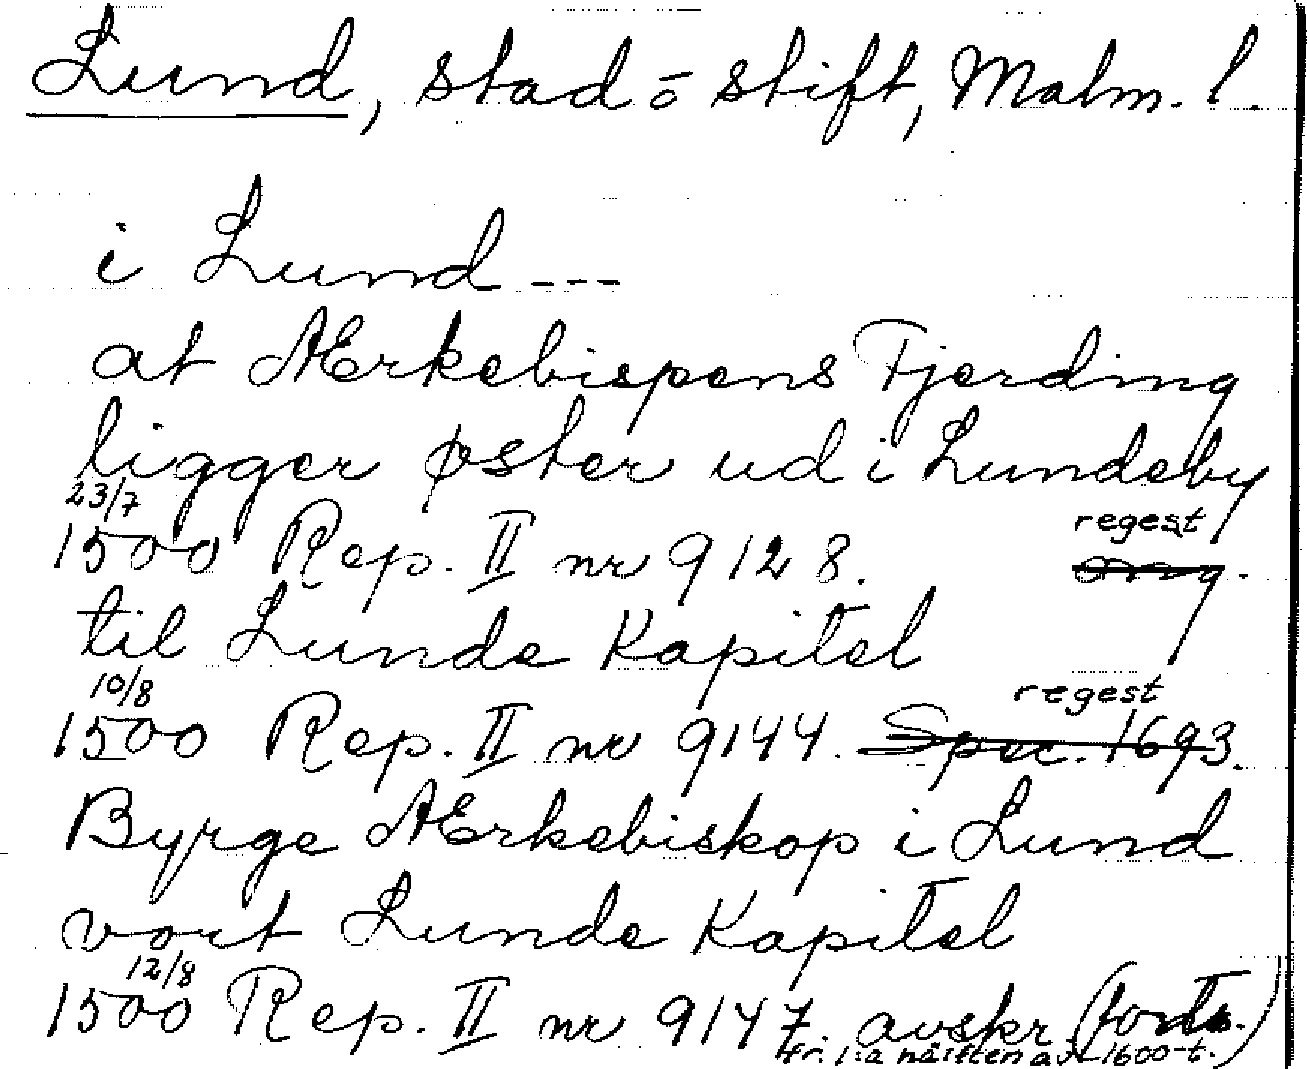 Lund, stad o stift, Malm. l.
i Lund ---
at Ærkebispens Fjerding
ligger øster ud i Lundeby
23/7 regest
1500 Rep. II nr 9128. orig.
til Lunde Kapitel
10/8 regest
1500 Rep. II nr 9144. Spec. 1693.
Byrge Ærkebiskop i Lund
vort Lunde Kapitel
12/8
1500 Rep. II nr 9147. avskr (forts.)
fr. 1:a hälften av 1600-t.